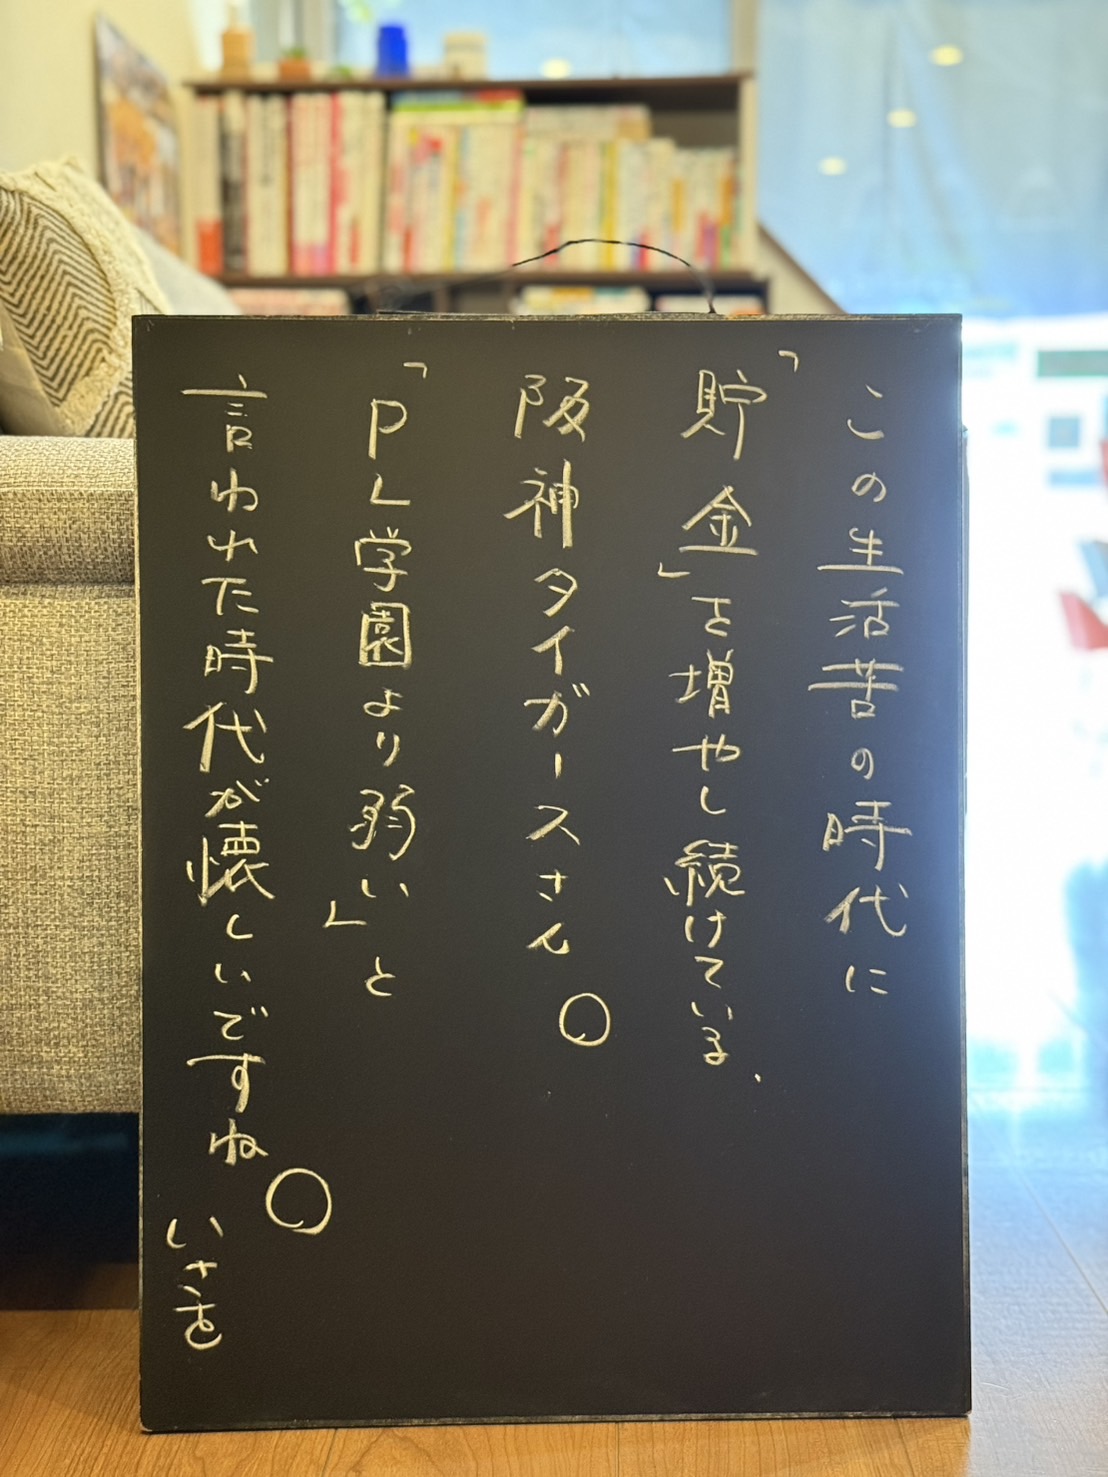 この生活苦の時代に
「貯金」を増やし続けている、
阪神タイガースさん。
「PL学園より弱い」と
言われた時代が懐しいですね。
いさを